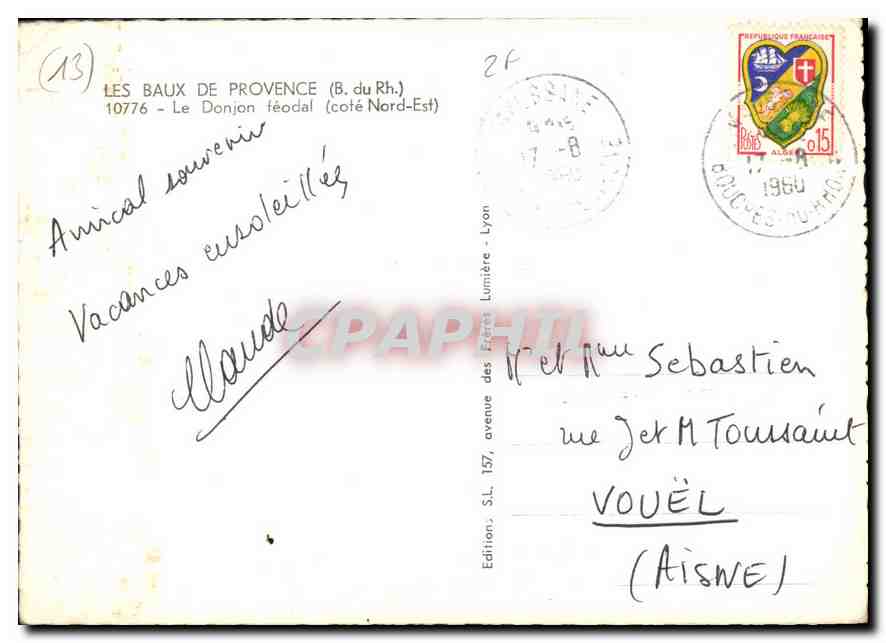 (13)
LES BAUX DE PROVENCE (B. du Rh.)
10776 - Le Donjon féodal (coté Nord-Est)
Amical souvenir
Vacances ensoleillées
Claude
Editions S.L. 157, avenue des Frères Lumière - Lyon
2F
17 -8
REPUBLIQUE FRANÇAISE
POSTES
0,15
ALGER
17 -8
1960
BOUCHES-DU-RHONE
CPAPHIL
Mr et Mme Sebastien
rue J et M Toussaint
VOUËL
(AISNE)